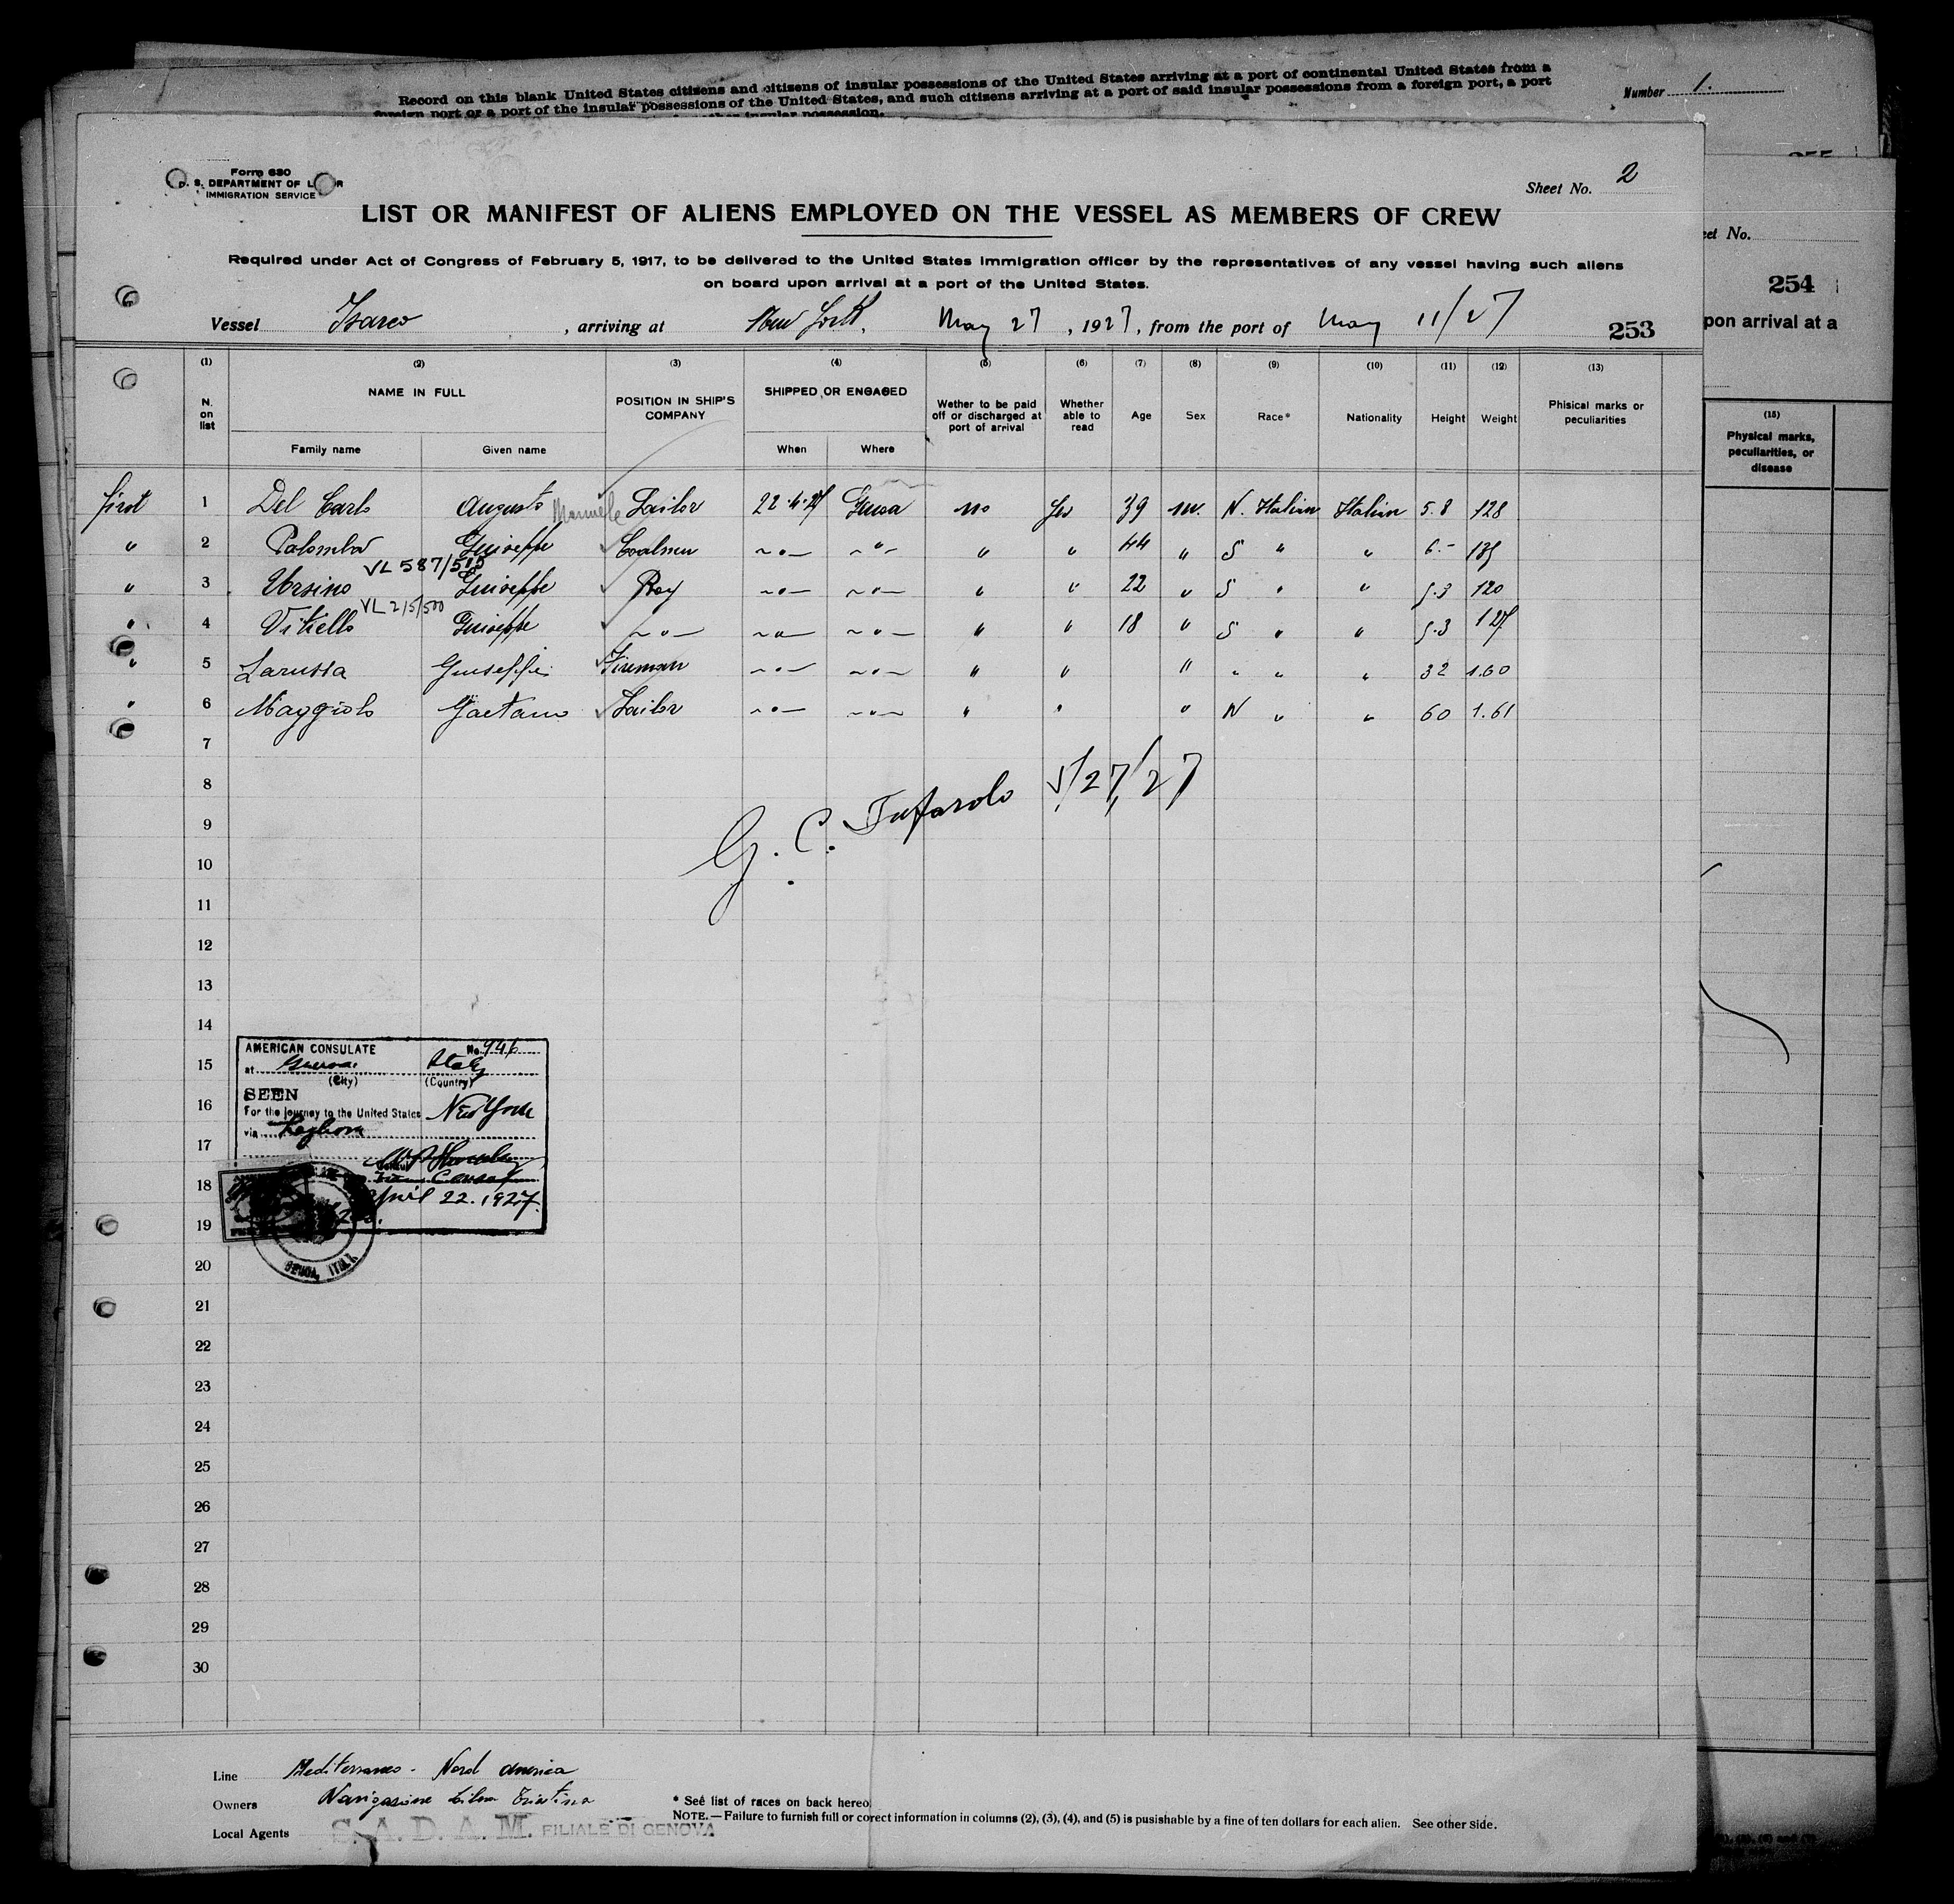 Record on this blank United States citizens and citizens of insular possessions of the United States arriving at a port of continental United States from a
foreign port or a port of the insular possessions of the United States, and such citizens arriving at a port of said insular possessions from a foreign port, a port
another insular possession.
Number 1.
Form 680
U. S. DEPARTMENT OF L R
IMMIGRATION SERVICE
Sheet No. 2
LIST OR MANIFEST OF ALIENS EMPLOYED ON THE VESSEL AS MEMBERS OF CREW
eet No.
Required under Act of Congress of February 5, 1917, to be delivered to the United States immigration officer by the representatives of any vessel having such aliens
on board upon arrival at a port of the United States.
254
Vessel Isarco, arriving at New York, May 27, 1927, from the port of May 11/27
253
pon arrival at a
(1) (2) (3) (4) (5) (6) (7) (8) (9) (10) (11) (12) (13)
N. on list
NAME IN FULL
Family name Given name
POSITION IN SHIP'S COMPANY
SHIPPED OR ENGAGED
When Where
Wether to be paid off or discharged at port of arrival
Whether able to read
Age Sex Race* Nationality Height Weight
Phisical marks or peculiarities
(15)
Physical marks, peculiarities, or disease
first 1 Del Carlo Augusto Manuele Sailor 22.4.27 Genoa no Yes 39 m. N. Italian Italian 5.8 128
" 2 Palomba Giuseppe Coalmen -"- -"- " " 44 " S " " 6.- 135
VL 587/515
" 3 Ursino Giuseppe Boy -"- -"- " " 22 " S " " 5.3 120
VL 215/500
" 4 Vitiello Giuseppe -"- -"- -"- " " 18 " S " " 5.3 127
" 5 Larussa Giuseppe Fireman -"- -"- " " " " " " 32 1.60
" 6 Maggiolo Gaetano Sailor -"- -"- " " " N " " 60 1.61
7
8
G. C. Tufarolo 5/27/27
9
10
11
12
13
14
15
16
17
18
19
20
21
22
23
24
25
26
27
28
29
30
AMERICAN CONSULATE No. 946
at Genoa Italy
(City) (Country)
SEEN
For the journey to the United States New York
via Leghorn
Consul
April 22. 1927.
GENOA, ITALY
Line Mediterraneo - Nord America
Owners Navigazione Libera Triestina
Local Agents S. A. D. A. M. FILIALE DI GENOVA
* See list of races on back hereo
NOTE.—Failure to furnish full or corect information in columns (2), (3), (4), and (5) is pusishable by a fine of ten dollars for each alien. See other side.